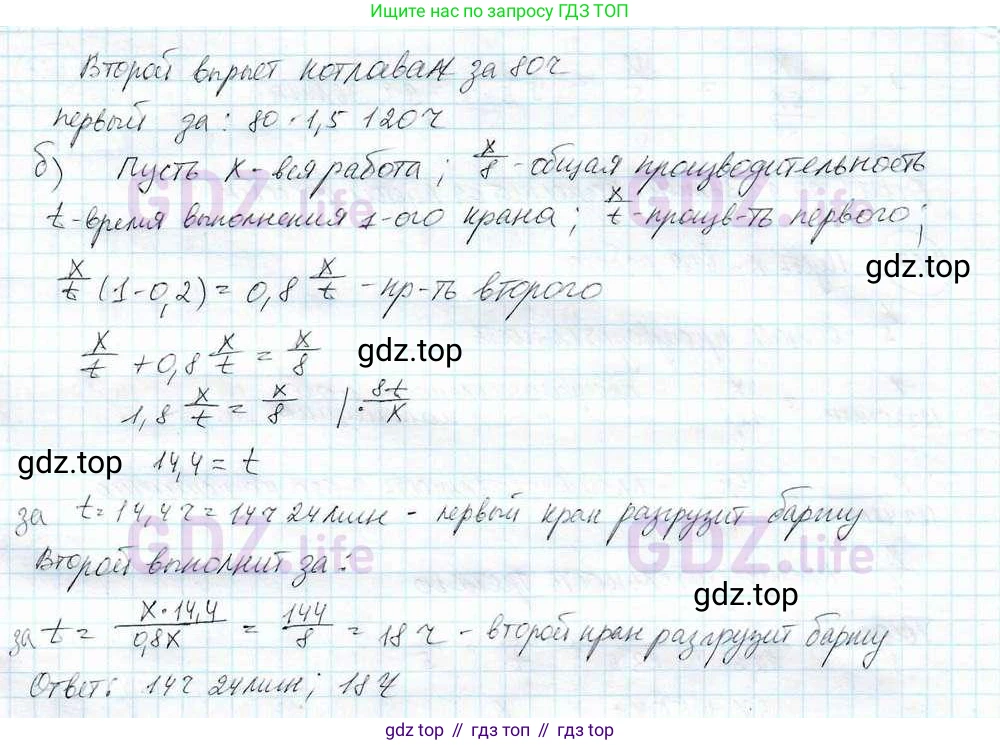 Ищите нас по запросу ГДЗ ТОП
Второй выроет котлован за 80ч
первый за: 80 · 1,5 120ч
б) Пусть x - вся работа; x/8 - общая производительность
t - время выполнения 1-ого крана; x/t - произв-ть первого;
gdz.top
x/t (1-0,2) = 0,8 x/t - пр-ть второго
x/t + 0,8 x/t = x/8
gdz.top
1,8 x/t = x/8 | · 8t/x
gdz.top
14,4 = t
за t = 14,4 ч = 14ч 24мин - первый кран разгрузит баржу
Второй выполнит за:
gdz.top
за t = x·14,4/0,8x = 144/8 = 18 ч - второй кран разгрузит баржу
Ответ: 14ч 24мин; 18ч
GDZ.life
GDZ.life
GDZ.life
GDZ.life
gdz.top // гдз.топ // gdz.top // гдз.топ